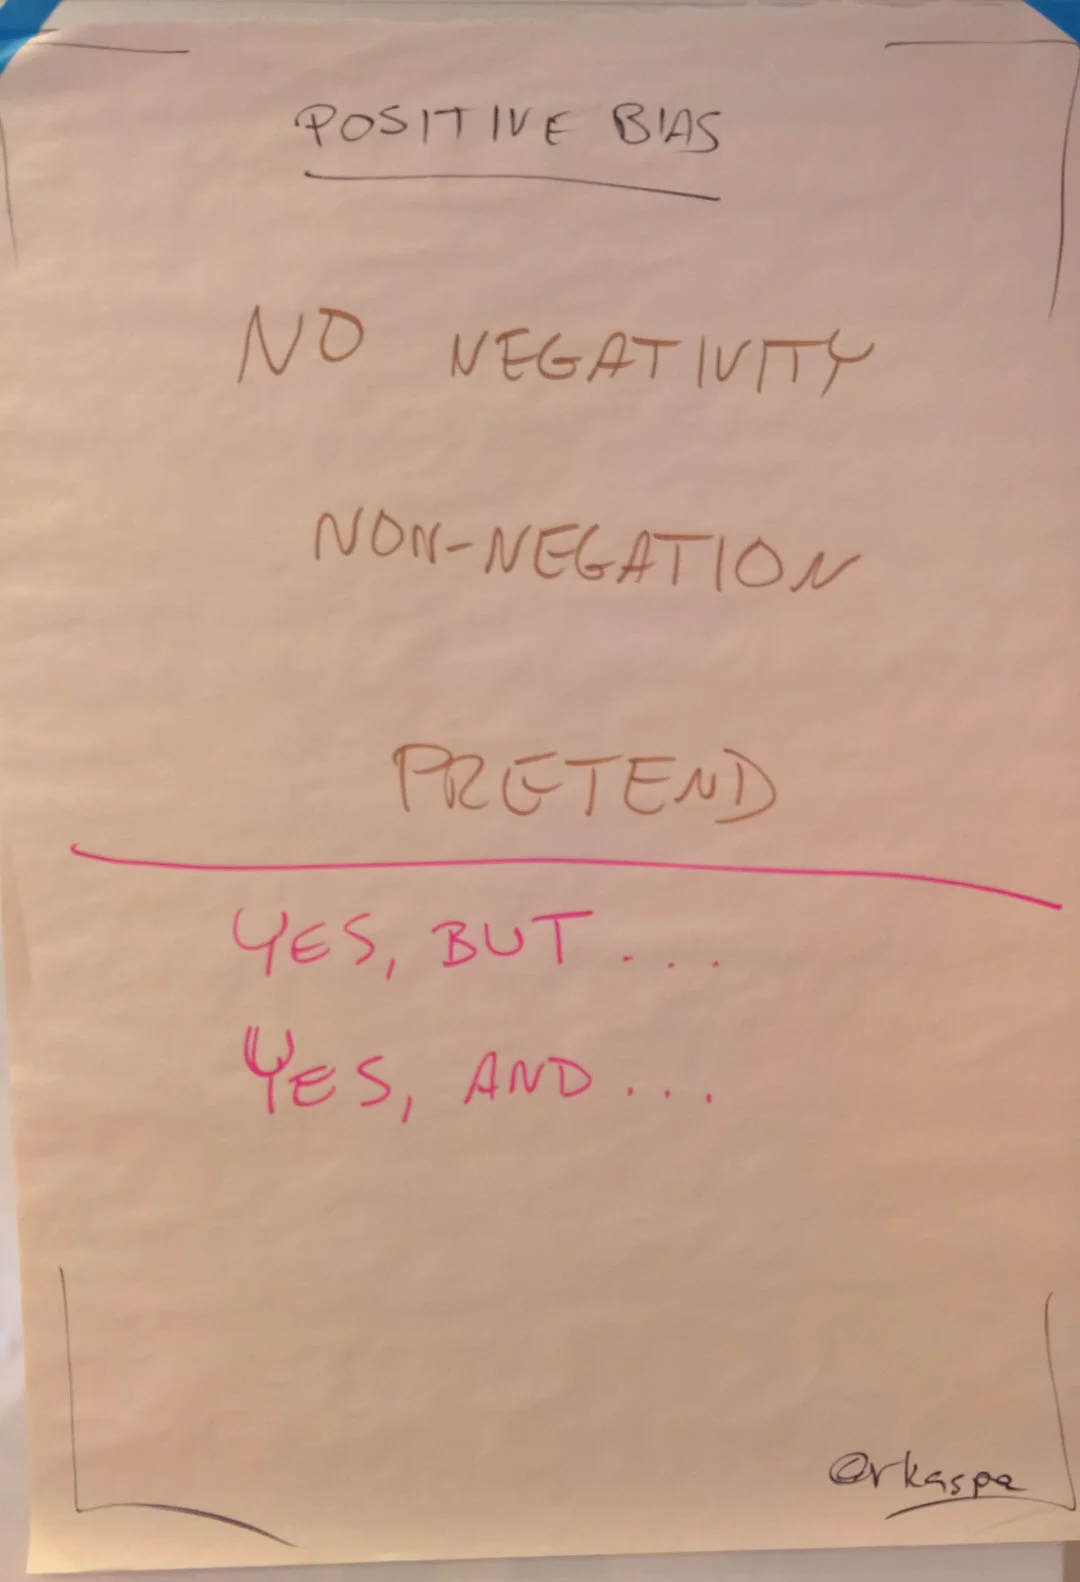 POSITIVE BIAS
NO NEGATIVITY
NON-NEGATION
PRETEND
YES, BUT...
YES, AND...
@rkaspe